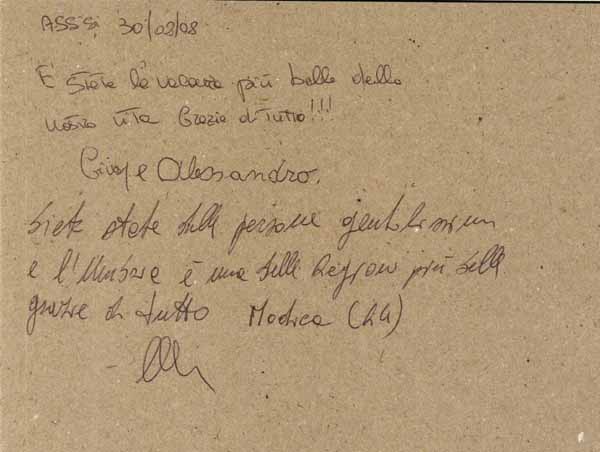 ASSISI 30/08/08
E' STATA la vacanza più bella della
nostra vita Grazie di Tutto!!!
e Alessandro.
Siete state delle persone gentilissime
e l'Umbria è una delle Regioni più belle
grazie di tutto Modica (RG)